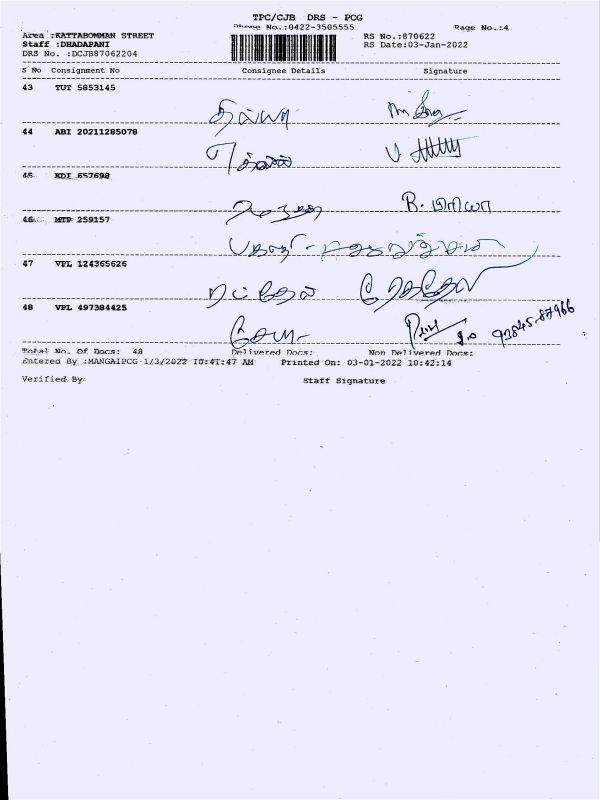 TPC/CJB DRS - PCG
Phone No.:0422-3505555 Page No.:4
Area :KATTABOMMAN STREET RS No.:870622
Staff :DHADAPANI RS Date:03-Jan-2022
DRS No. :DCJB87062204
S No Consignment No Consignee Details Signature
43 TUT 5853145
திவ்யா
44 ABI 20211285078
45 KDI 657698
B. பிரியா
46 MTP 259157
47 VPL 124365626
48 VPL 497384425
97845-87966
Total No. Of Docs: 48 Delivered Docs: Non Delivered Docs:
Entered By :MANGAIPCG 1/3/2022 10:41:47 AM Printed On: 03-01-2022 10:42:14
Verified By Staff Signature